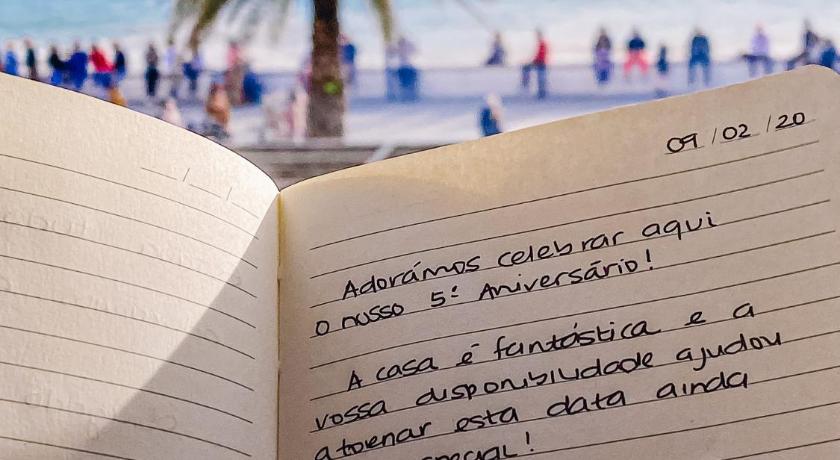 09/02/20
Adorámos celebrar aqui
o nosso 5º Aniversário!
A casa é fantástica e a
vossa disponibilidade ajudou
a toenar esta data ainda